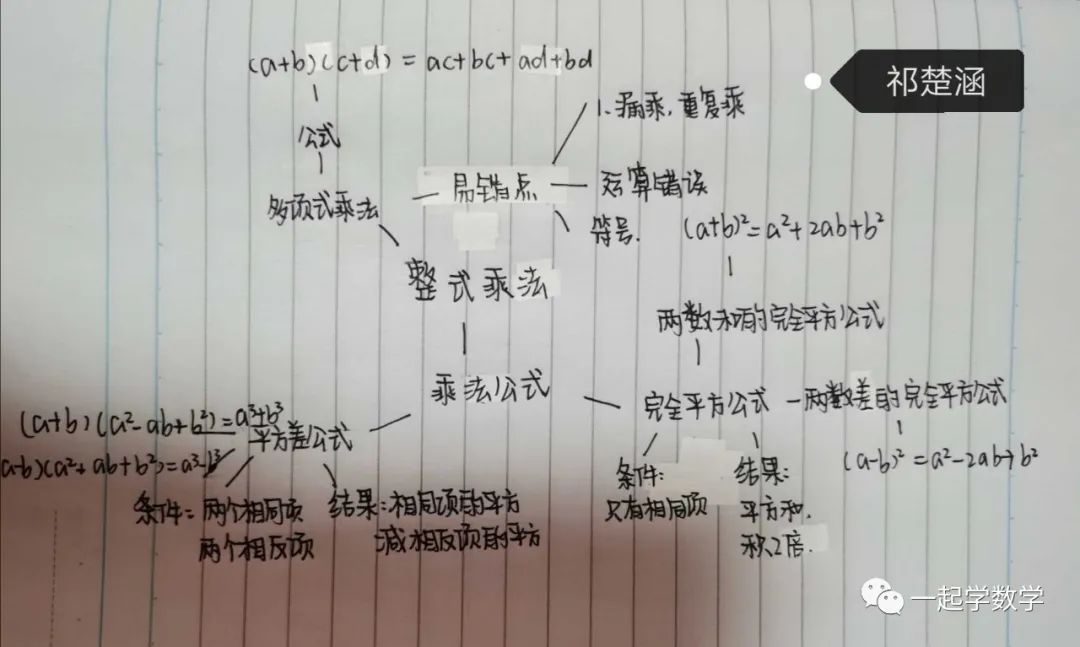 (a+b)(c+d) = ac+bc+ad+bd
祁楚涵
公式
1.漏乘,重复乘
多项式乘法
易错点
运算错误
符号.
(a+b)²=a²+2ab+b²
整式乘法
两数和的完全平方公式
乘法公式
完全平方公式
两数差的完全平方公式
(a-b)²=a²-2ab+b²
(a+b)(a²-ab+b²)=a³+b³
平方差公式
a-b)(a²+ab+b²)=a³-b³
条件:两个相同项
两个相反项
结果:相同项的平方
减相反项的平方
条件:
只有相同项
结果:
平方和.
积2倍.
一起学数学